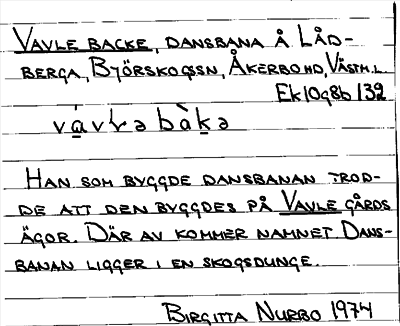 VAVLE BACKE, DANSBANA Å LÅD-
BERGA, BJÖRSKOGSSN, ÅKERBOHD, VÄSTM.L.
Ek10g8b 132
vávlə bàkə
HAN SOM BYGGDE DANSBANAN TROD-
DE ATT DEN BYGGDES PÅ VAVLE GÅRDS
ÄGOR. DÄR AV KOMMER NAMNET DANS-
BANAN LIGGER I EN SKOGSDUNGE.
BIRGITTA NURBO 1974